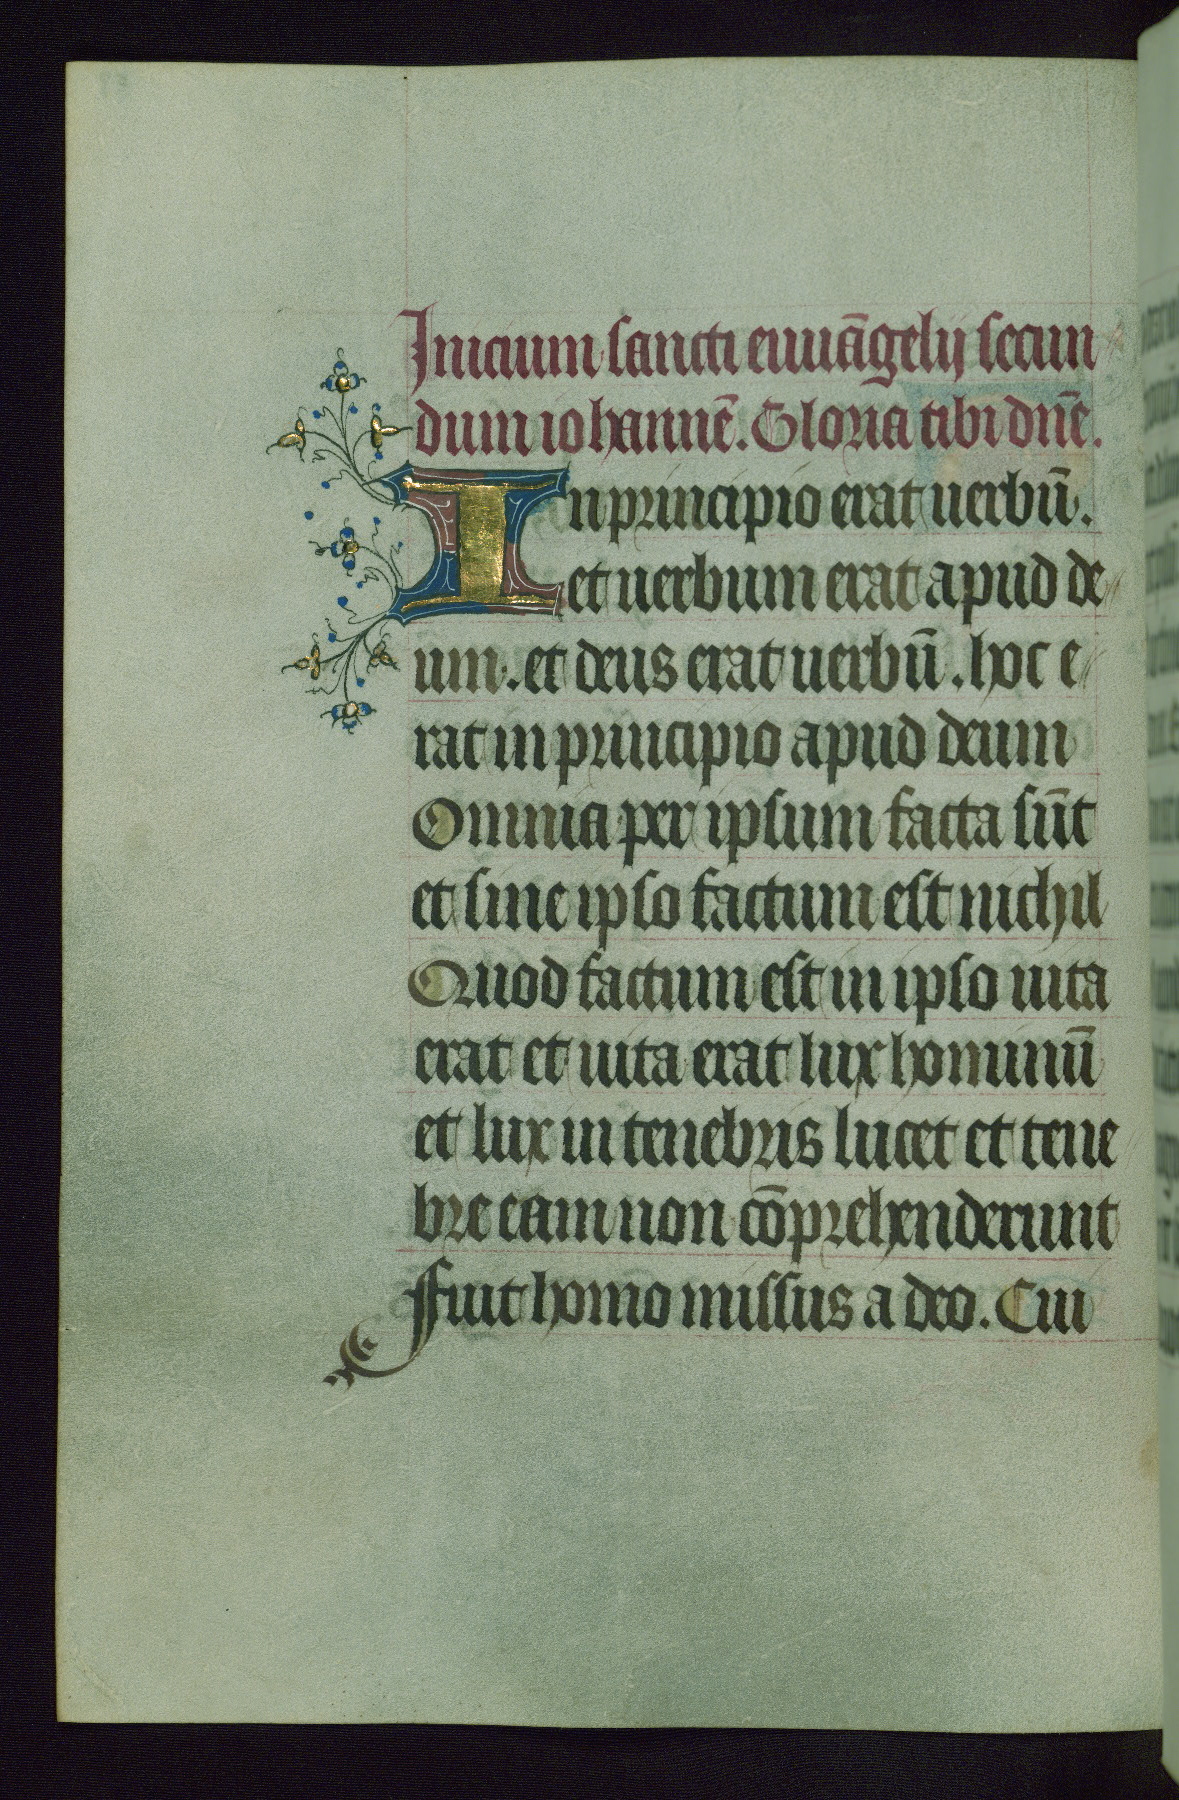 Inicium sancti euuāgelij secun
dum iohannē. Gloria tibi dn̄e.
In principio erat uerbū.
et uerbum erat apud de
um. et deus erat uerbū. hoc e
rat in principio apud deum
Omnia per ipsum facta sūt
et sine ipso factum est nichil
Quod factum est in ipso uita
erat et uita erat lux hominū
et lux in tenebris lucet et tene
bre eam non cōprehenderunt
Fuit homo missus a deo. Cui